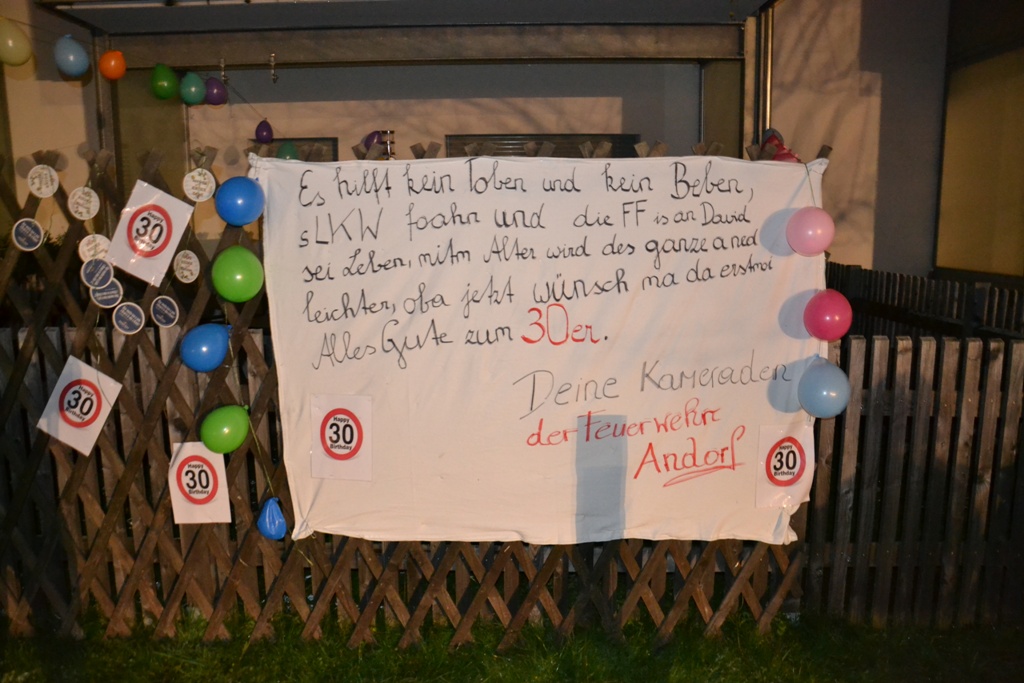 Es hilft kein Toben und kein Beben,
sLKW foahn und die FF is an David
sei Leben, mitm Alter wird des ganze a ned
leichter, oba jetzt wünsch ma da erstmol
Alles Gute zum 30er.
Deine Kameraden
der Feuerwehr
Andorf
Happy
30
Birthday
Happy
30
Birthday
Happy
30
Birthday
Happy
30
Birthday
Happy
30
Birthday